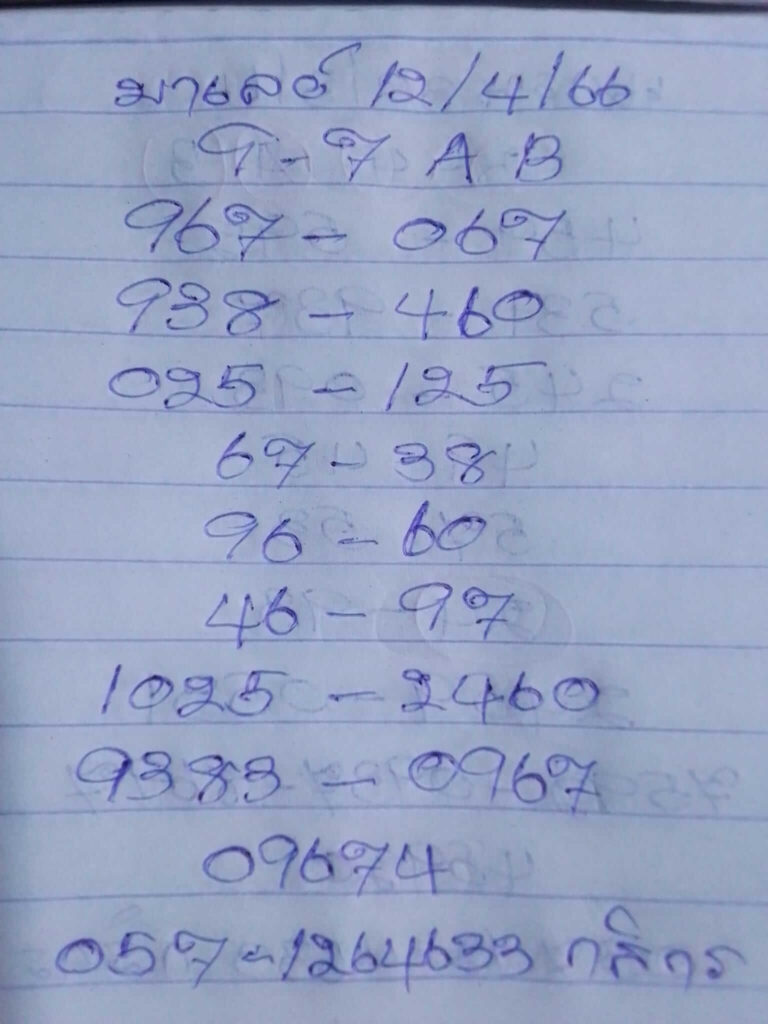 มาเลย์ 12/4/66
9 - 7 A B
967 - 067
938 - 460
025 - 125
67 - 38
96 - 60
46 - 97
1025 - 2460
9383 - 0967
09674
057-1264633 กสิกร